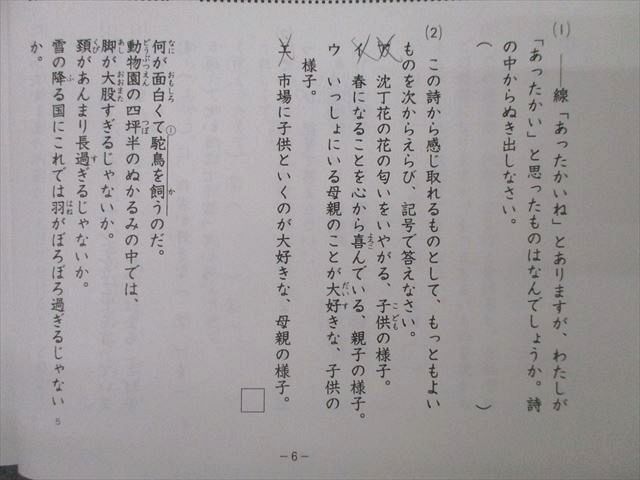 (1) ――線「あったかいね」とありますが、わたしが
「あったかい」と思ったものはなんでしょうか。詩
の中からぬき出しなさい。
(　　　)
(2) この詩から感じ取れるものとして、もっともよい
ものを次からえらび、記号で答えなさい。
ア 沈丁花の花の匂いをいやがる、子供の様子。
イ 春になることを心から喜んでいる、親子の様子。
ウ いっしょにいる母親のことが大好きな、子供の
様子。
エ 市場に子供といくのが大好きな、母親の様子。
何が面白くて①駝鳥を飼うのだ。
動物園の四坪半のぬかるみの中では、
脚が大股すぎるじゃないか。
頚があんまり長過ぎるじゃないか。
雪の降る国にこれでは羽がぼろぼろ過ぎるじゃない
か。
5
－6－